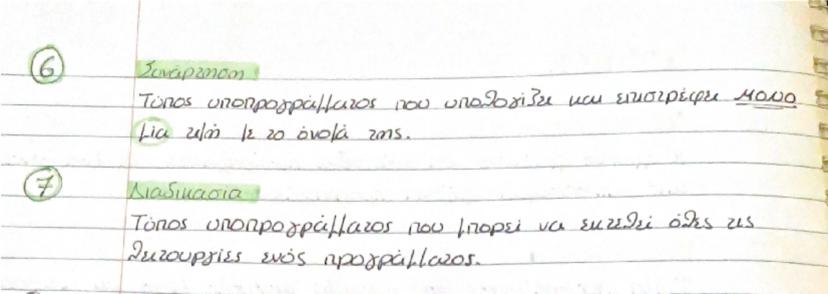 6 Συνάρτηση:
Τύπος υποπρογράμματος που υπολογίζει και επιστρέφει μονο
μία τιμή με το όνομά της.
7 Διαδικασία:
Τύπος υποπρογράμματος που μπορεί να εκτελεί όλες τις
λειτουργίες ενός προγράμματος.